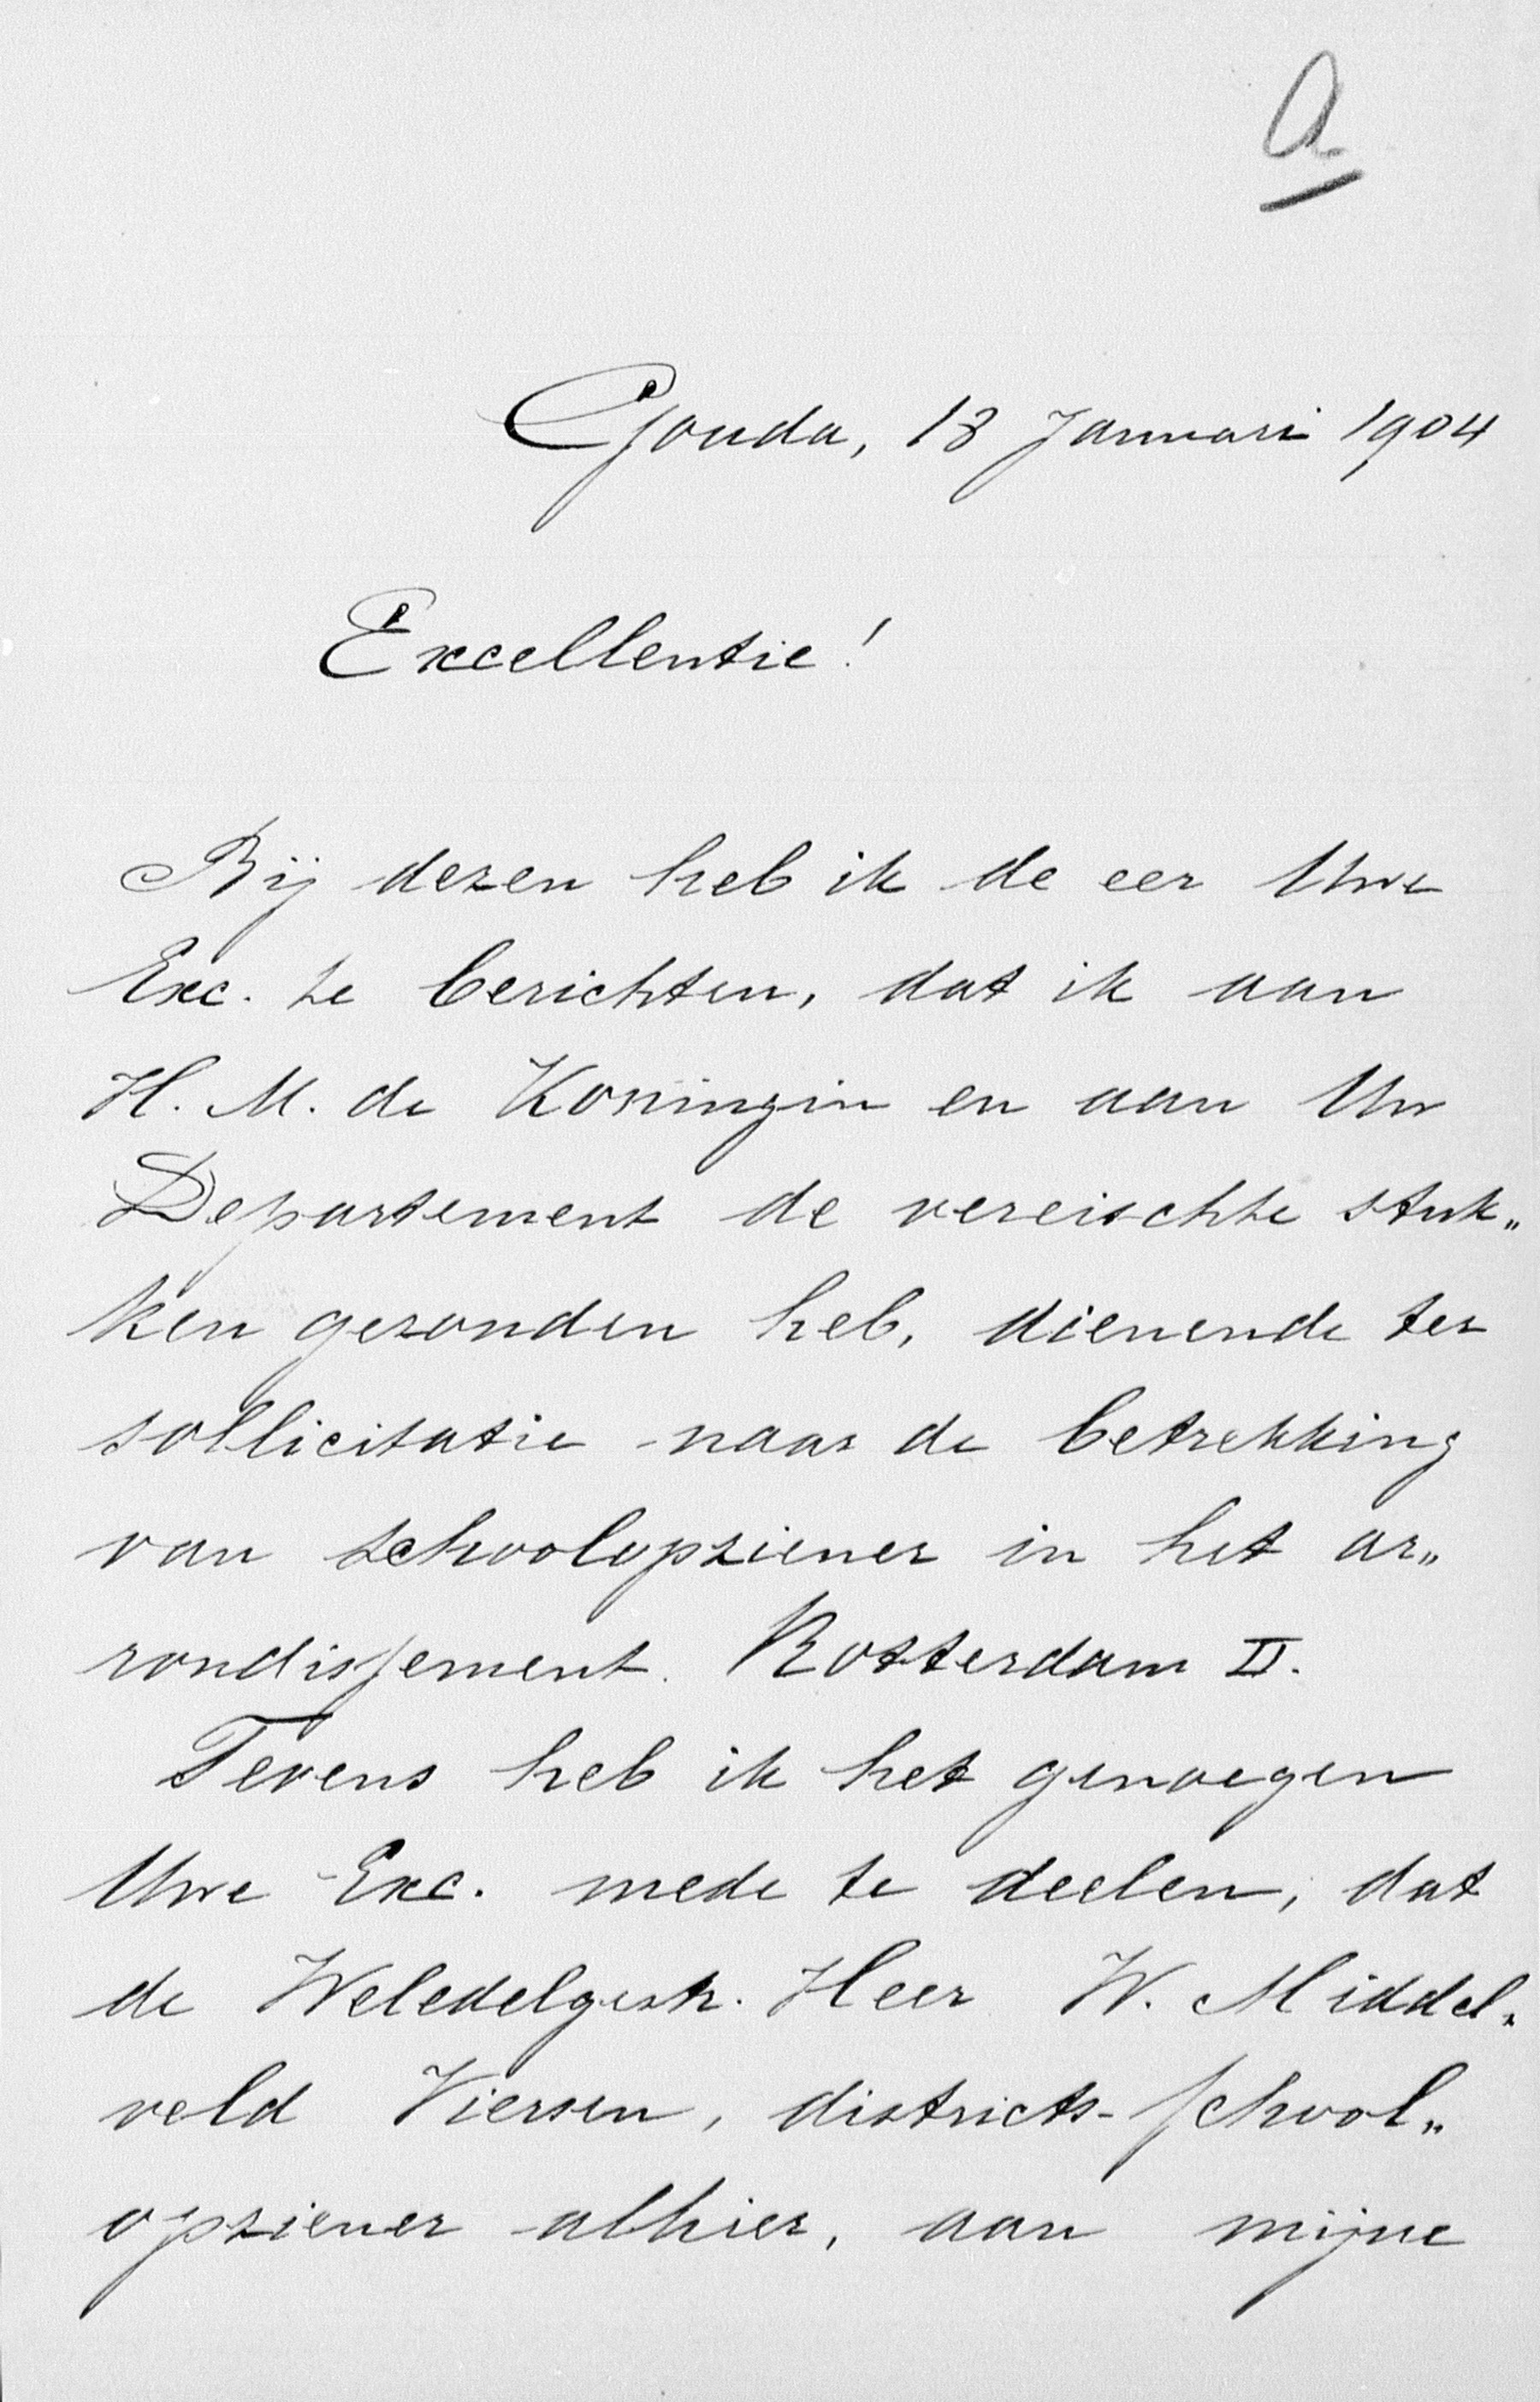 a
Gouda, 13 Januari 1904
Excellentie!
Bij dezen heb ik de eer Uwe
Exc. te berichten, dat ik aan
H. M. de Koningin en aan Uw
Departement de vereischte stuk„
ken gezonden heb, dienende ter
sollicitatie naar de betrekking
van schoolopziener in het ar„
rondissement Rotterdam II.
Tevens heb ik het genoegen
Uwe Exc. mede te deelen, dat
de Weledelgestr. Heer W. Middel„
veld Viersen, districts-school„
opziener alhier, aan mijne